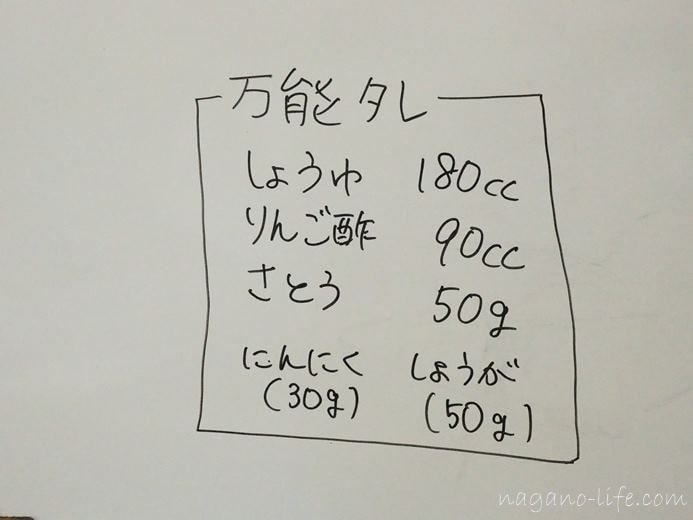 万能タレ
しょうゆ 180cc
りんご酢 90cc
さとう 50g
にんにく しょうが
(30g) (50g)
nagano-life.com